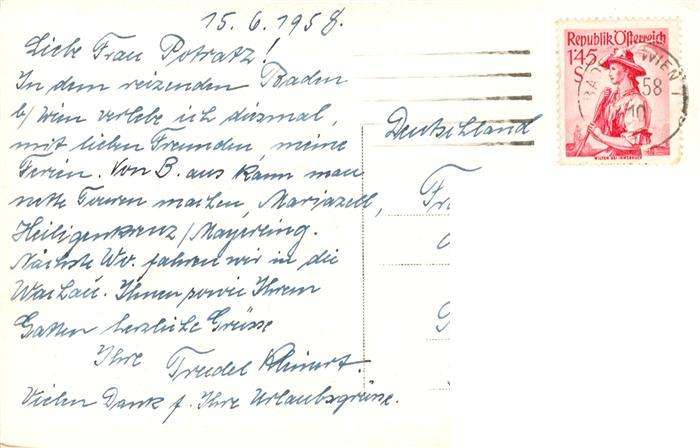 15. 6. 1958.
Liebe Frau Potratz!
In dem reizenden Baden
b/Wien verlebe ich diesmal,
mit lieben Freunden meine
Ferien. Von B. aus kann man
nette Touren machen, Mariazell,
Heiligenkreuz/Mayerling.
Nächste Wo. fahren wir in die
Wachau. Ihnen sowie Ihrem
Gatten herzliche Grüsse
Ihre Friedel Kleinert.
Vielen Dank f. Ihre Urlaubsgrüsse.
Deutschland
Fr
Republik Österreich
1'45
S
WIEN
58
10